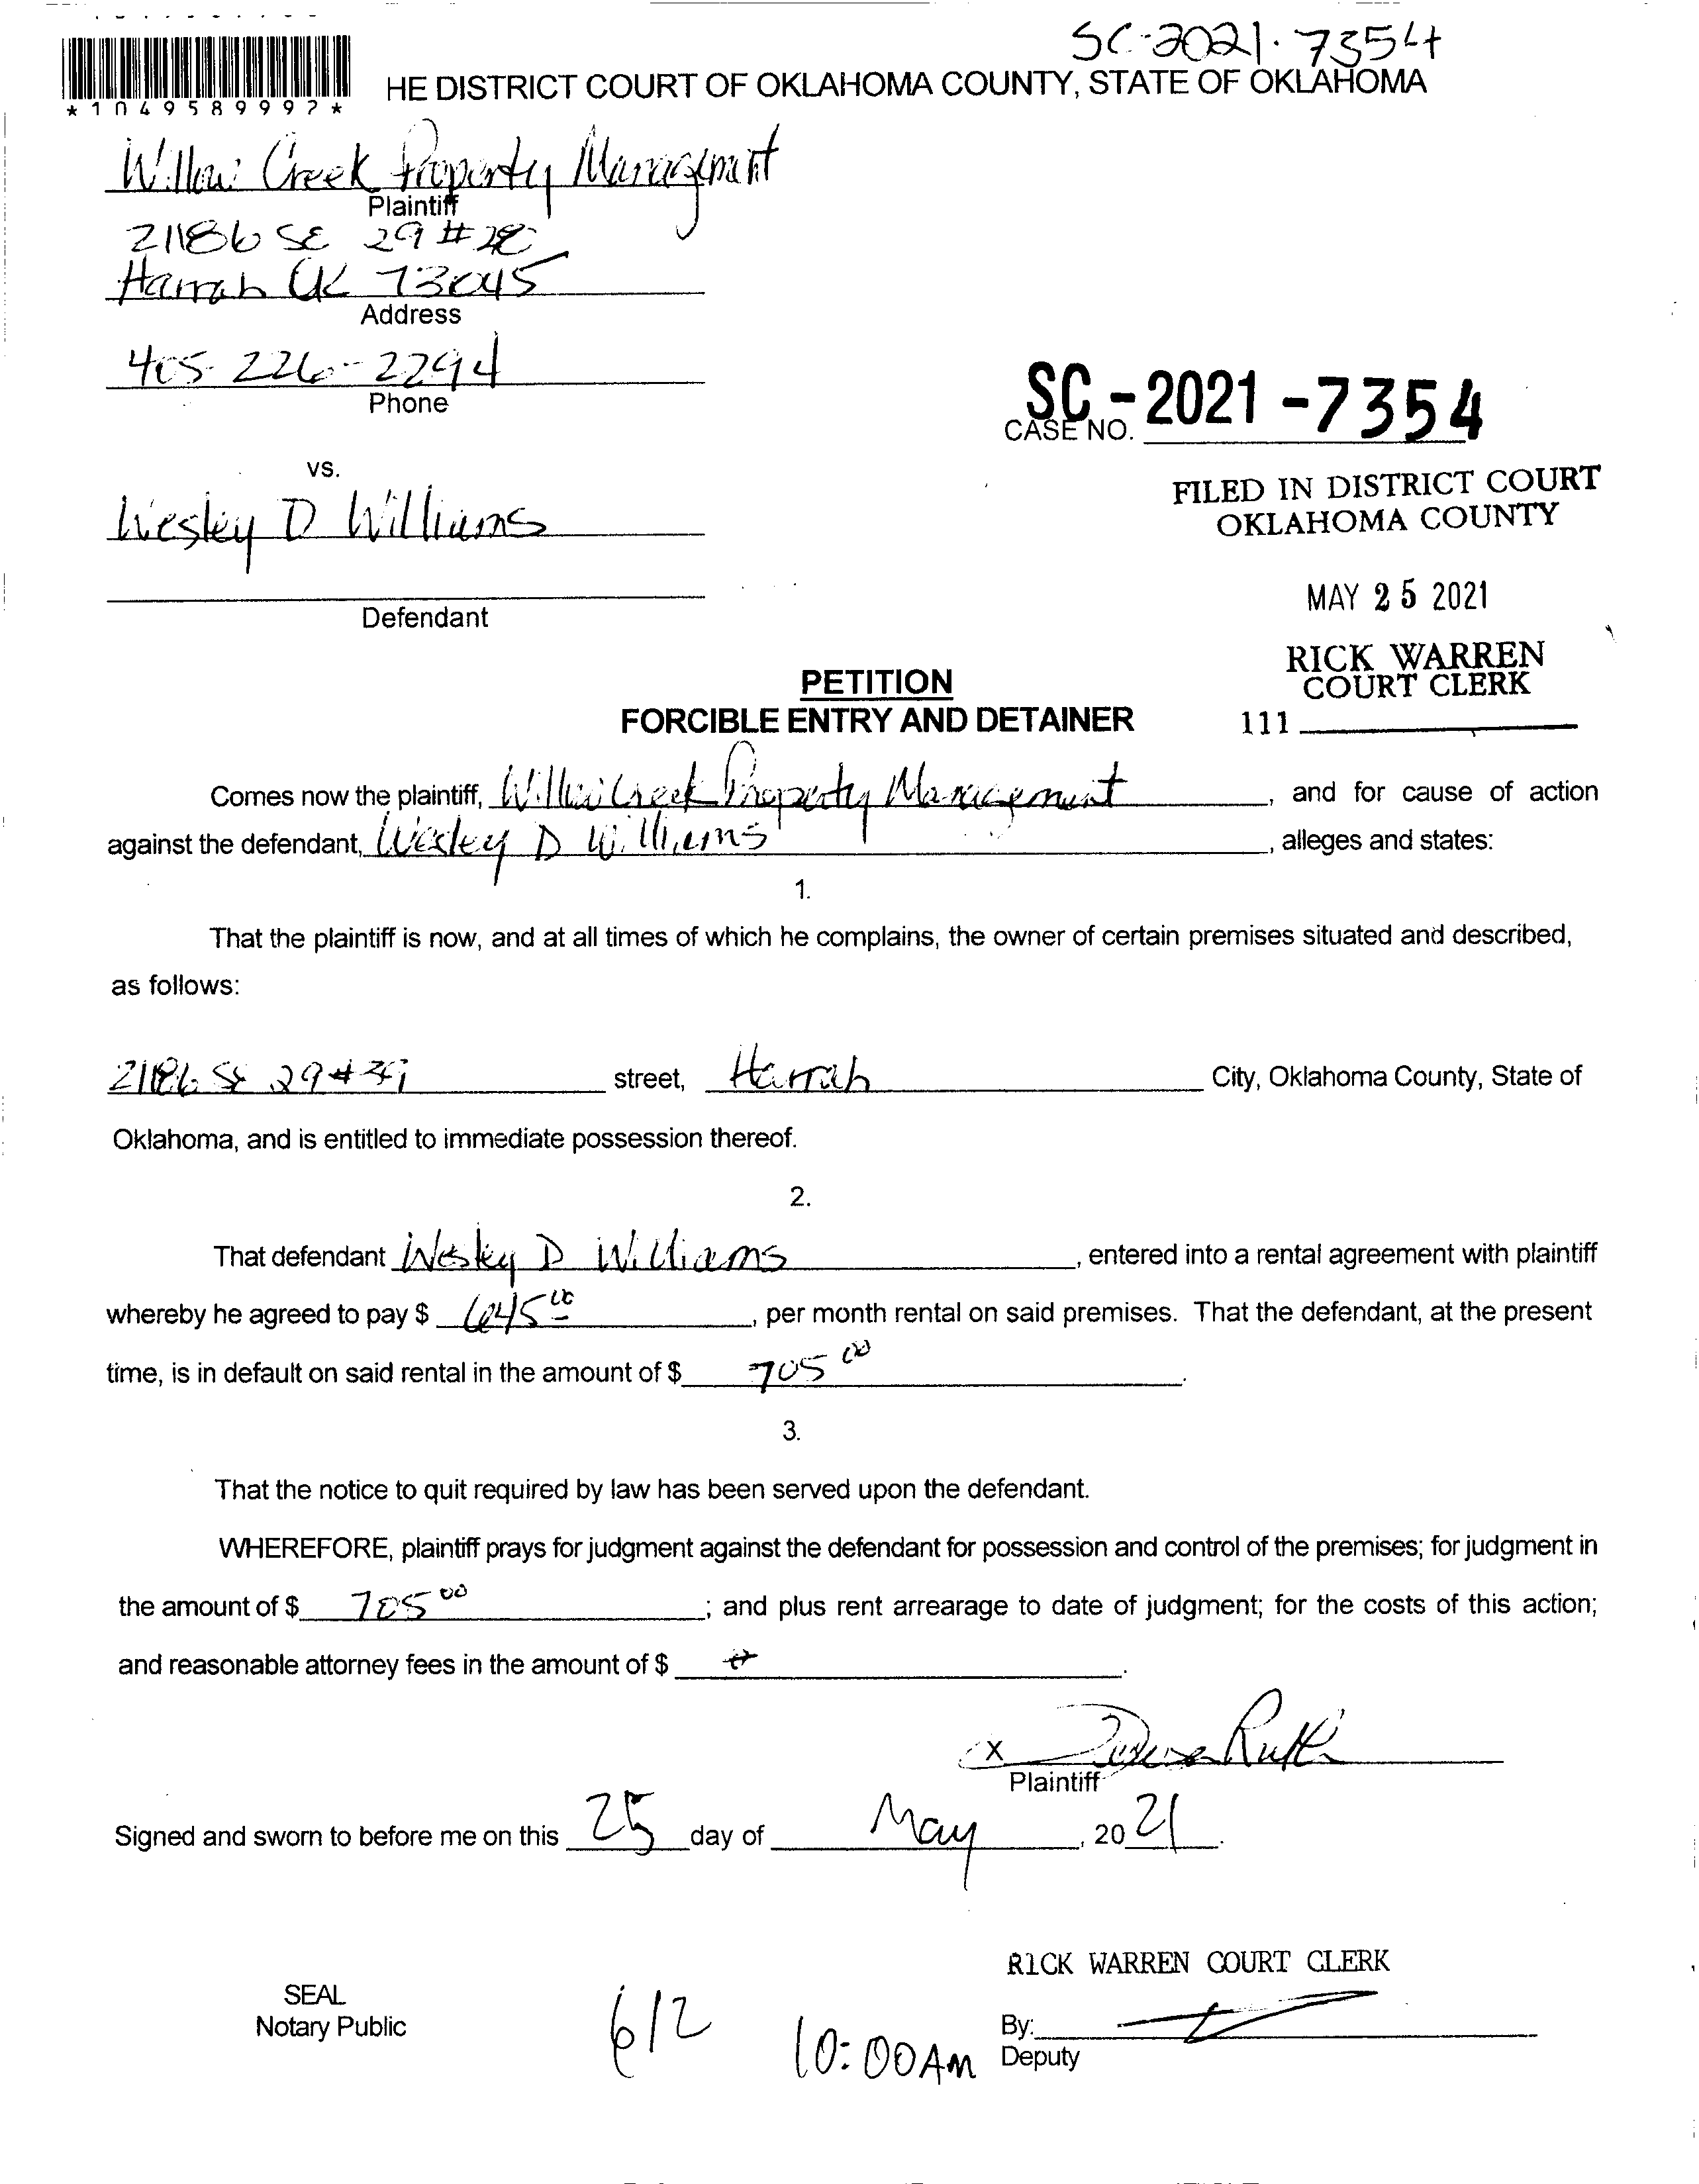 SC-2021-7354
*1049589992*
HE DISTRICT COURT OF OKLAHOMA COUNTY, STATE OF OKLAHOMA
Willow Creek Property Management
Plaintiff
21186 SE 29 # 28
Harrah OK 73045
Address
405-226-2294
Phone
SC - 2021 - 7354
CASE NO.
vs.
Wesley D Williams
FILED IN DISTRICT COURT
OKLAHOMA COUNTY
Defendant
MAY 25 2021
RICK WARREN
COURT CLERK
111
PETITION
FORCIBLE ENTRY AND DETAINER
Comes now the plaintiff, Willow Creek Property Management, and for cause of action
against the defendant, Wesley D Williams, alleges and states:
1.
That the plaintiff is now, and at all times of which he complains, the owner of certain premises situated and described,
as follows:
21186 SE 29 # 39 street, Harrah City, Oklahoma County, State of
Oklahoma, and is entitled to immediate possession thereof.
2.
That defendant Wesley D Williams, entered into a rental agreement with plaintiff
whereby he agreed to pay $ 645 00, per month rental on said premises. That the defendant, at the present
time, is in default on said rental in the amount of $ 705 00.
3.
That the notice to quit required by law has been served upon the defendant.
WHEREFORE, plaintiff prays for judgment against the defendant for possession and control of the premises; for judgment in
the amount of $ 705 00; and plus rent arrearage to date of judgment; for the costs of this action;
and reasonable attorney fees in the amount of $
X
Plaintiff
Signed and sworn to before me on this 25 day of May, 2021.
RICK WARREN COURT CLERK
SEAL
Notary Public
6/2 10:00AM
By:
Deputy